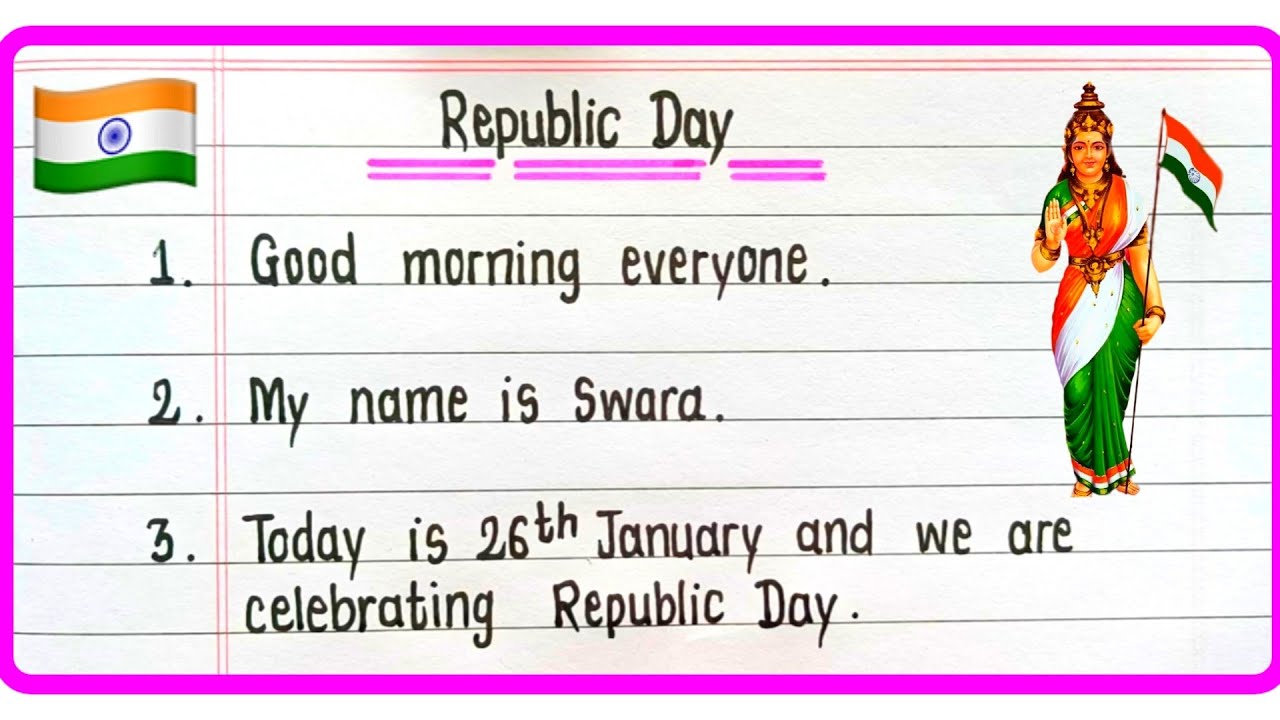 Republic Day
1. Good morning everyone.
2. My name is Swara.
3. Today is 26th January and we are
celebrating Republic Day.